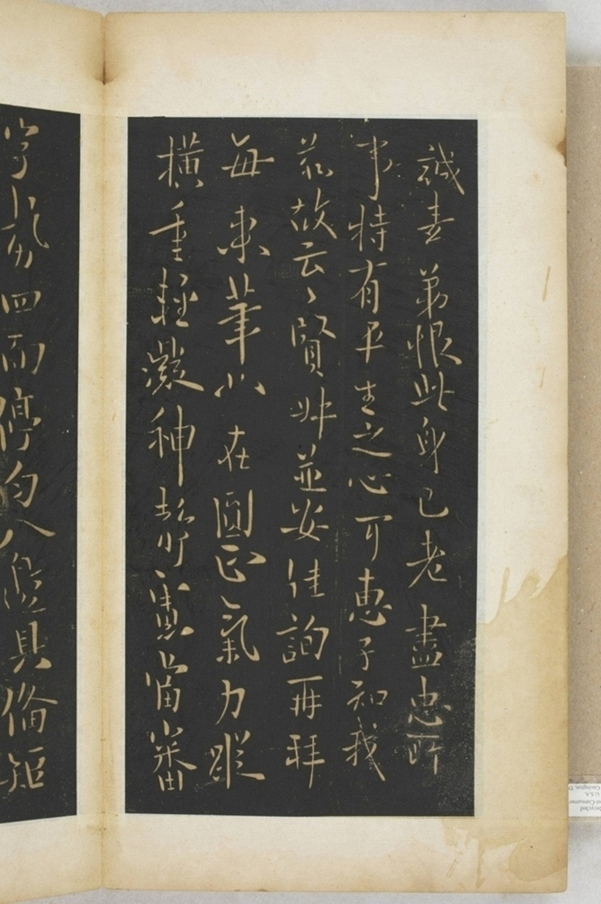 誠 弟恨此身已老盡忠所
事特有平生之心可惠子知我
故云々賢姊並安佳詢再拜
每秉筆必在圓正氣力縱
橫重輕凝神靜慮當審
字勢四面停勻八邊具備短